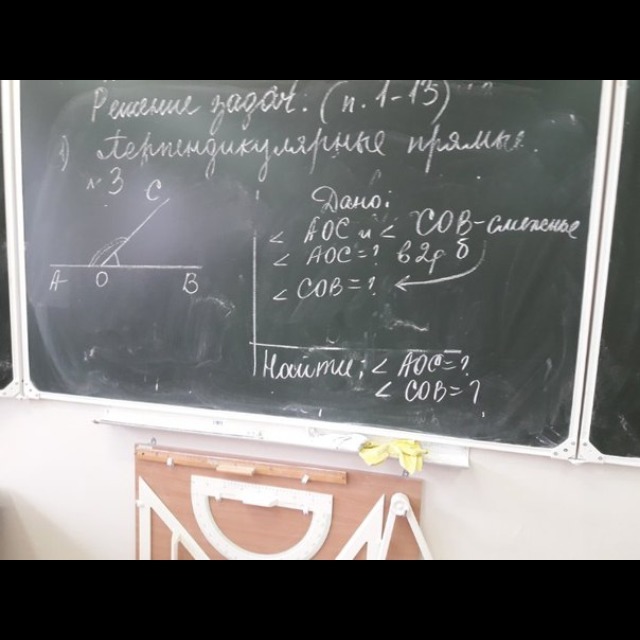 Решение задач. (п. 1-13)
1) Перпендикулярные прямые.
№3
C
A O B
Дано:
< AOC и < COB - смежные
< AOC = ? в 2р б
< COB = ?
Найти: < AOC = ?
< COB = ?